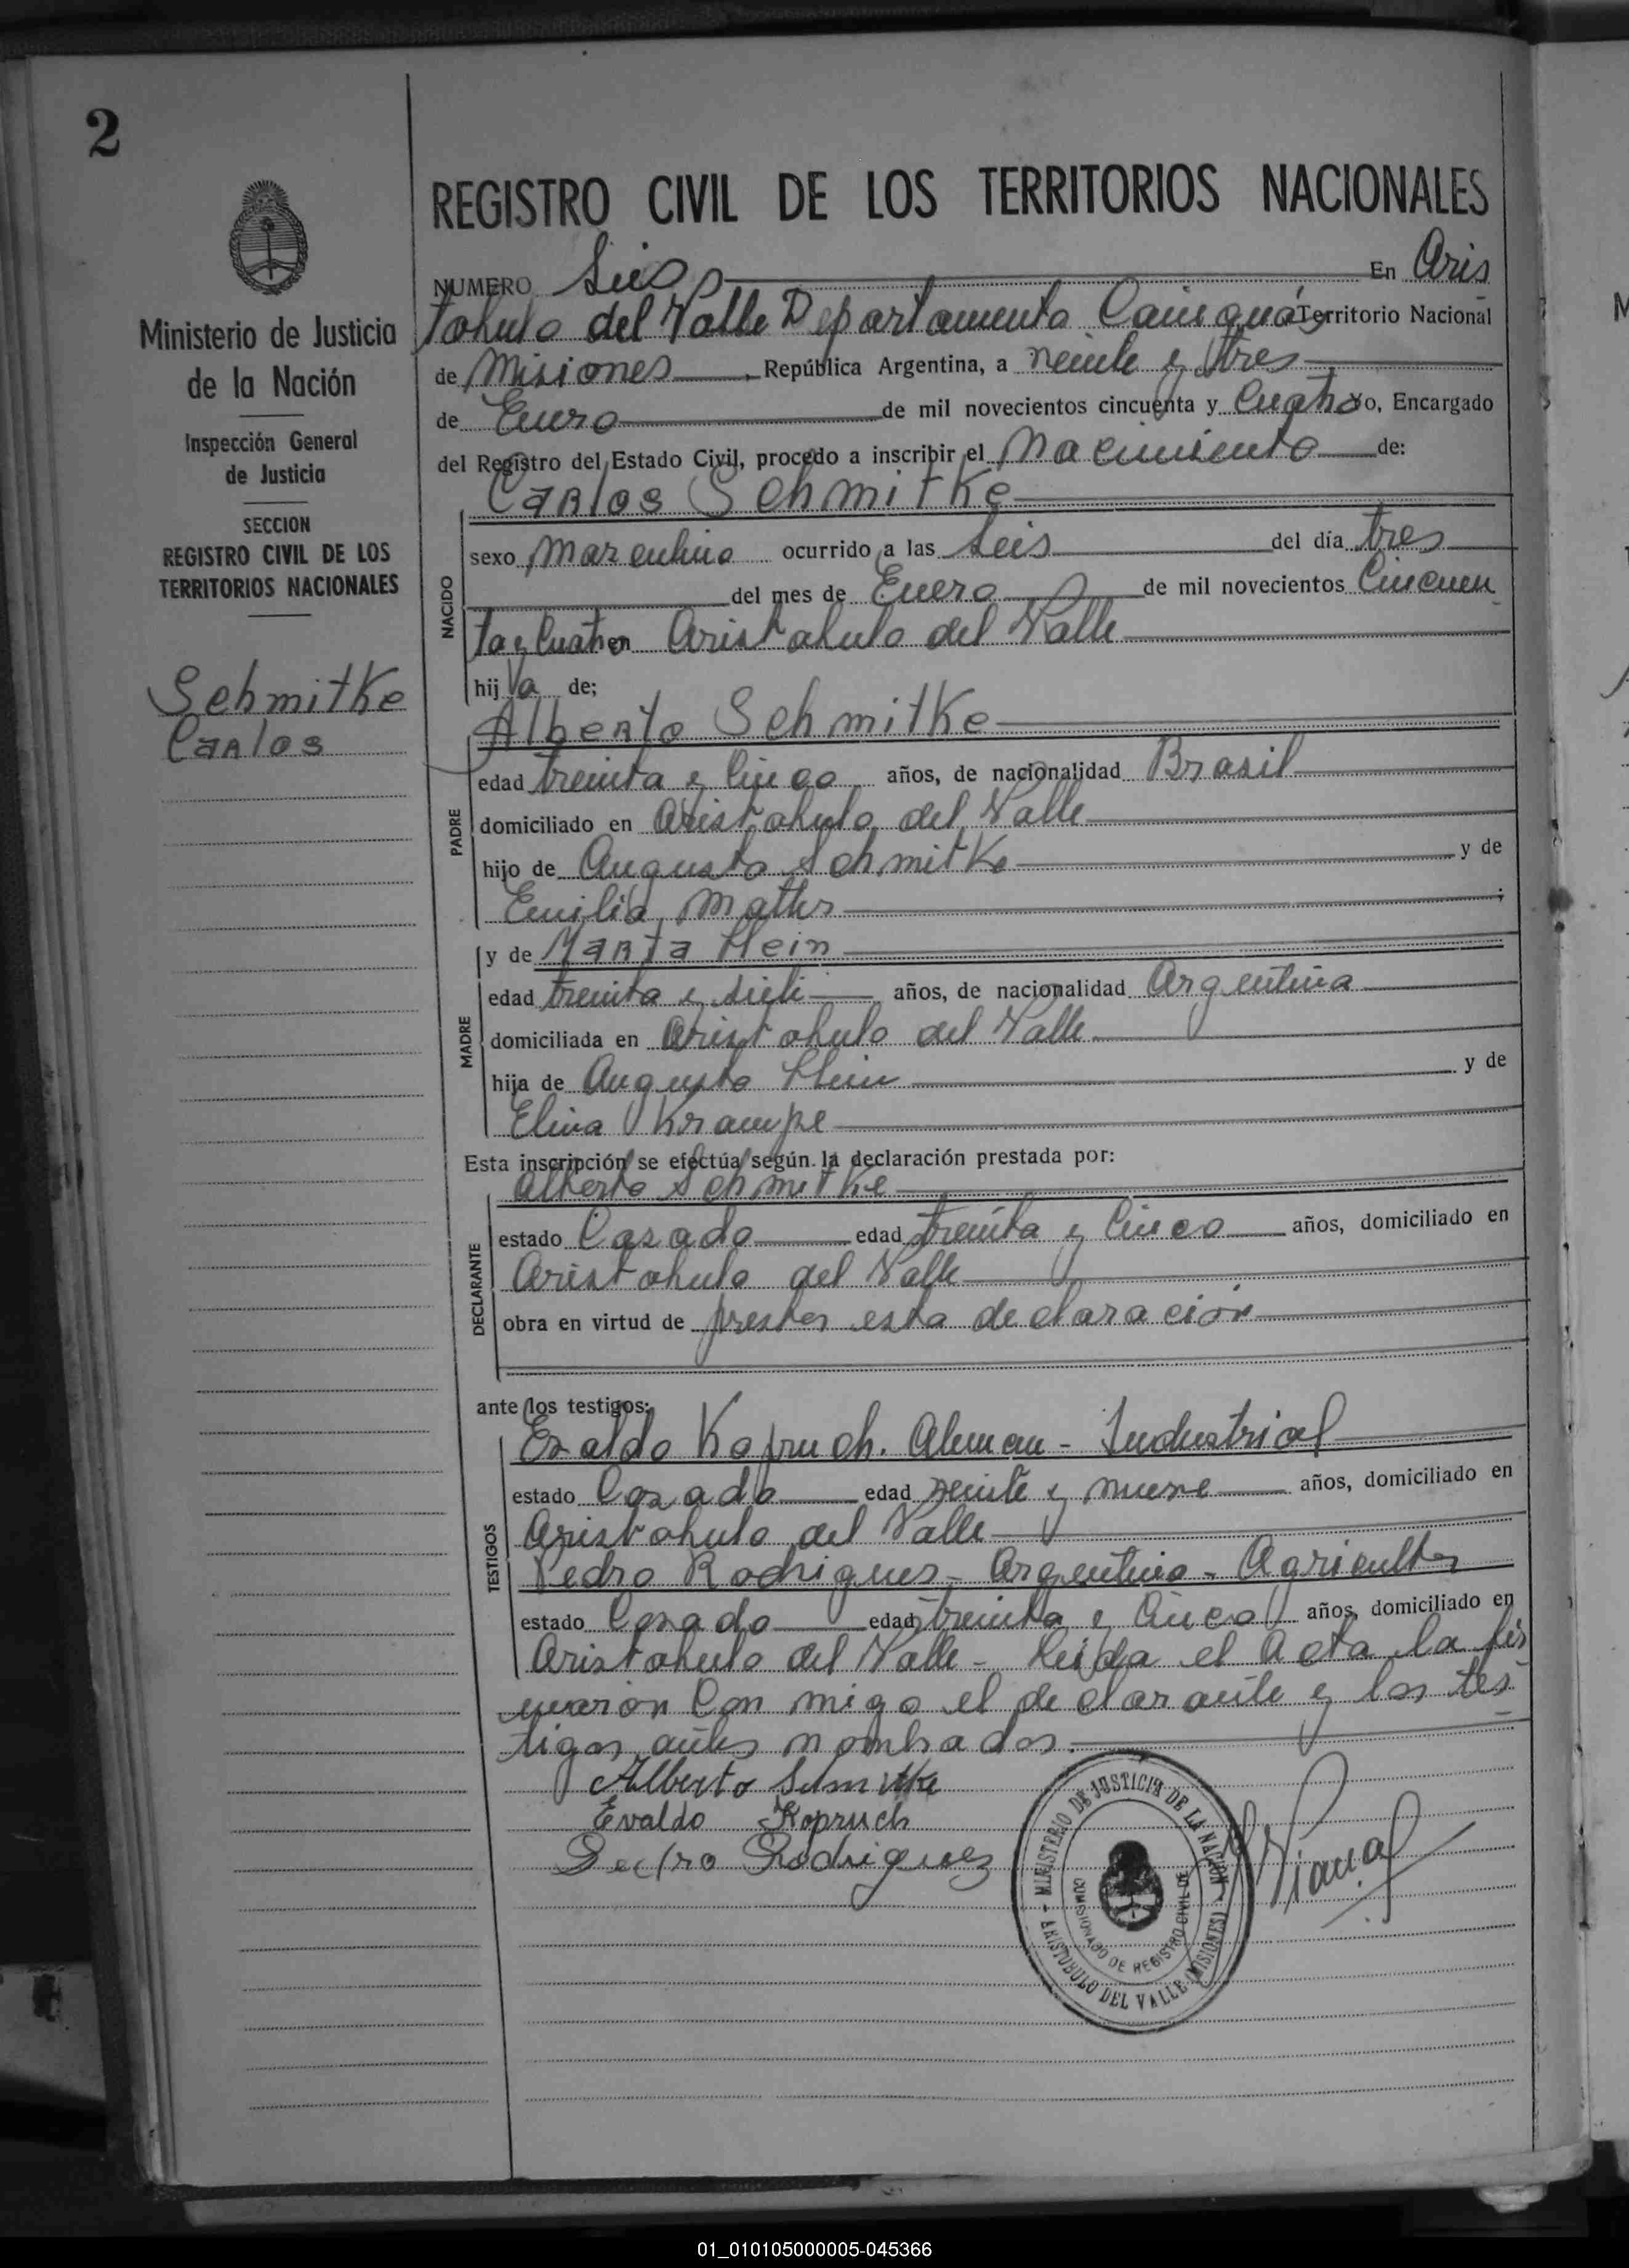 2
REGISTRO CIVIL DE LOS TERRITORIOS NACIONALES
Ministerio de Justicia
de la Nación
Inspección General
de Justicia
SECCION
REGISTRO CIVIL DE LOS
TERRITORIOS NACIONALES
Schmitke
Carlos
NUMERO Seis En Aris
tobulo del Valle Departamento Cainguás Territorio Nacional
de Misiones República Argentina, a veinte y tres
de Enero de mil novecientos cincuenta y Cuatro yo, Encargado
del Registro del Estado Civil, procedo a inscribir el Nacimiento de:
Carlos Schmitke
NACIDO
sexo Masculino ocurrido a las Seis del día tres
del mes de Enero de mil novecientos Cincuen
ta y Cuatro en Aristobulo del Valle
hijo de;
Alberto Schmitke
PADRE
edad treinta y Cinco años, de nacionalidad Brasil
domiciliado en Aristobulo del Valle
hijo de Augusto Schmitke y de
Emilia
y de Marta Klein
MADRE
edad treinta y siete años, de nacionalidad Argentina
domiciliada en Aristobulo del Valle
hija de Augusto Klein y de
Elina Krampe
Esta inscripción se efectúa según la declaración prestada por:
Alberto Schmitke
DECLARANTE
estado Casado edad treinta y Cinco años, domiciliado en
Aristobulo del Valle
obra en virtud de prestar esta declaración
ante los testigos:
TESTIGOS
Evaldo Kopruch. Aleman - Industrial
estado Casado edad veinte y nueve años, domiciliado en
Aristobulo del Valle
Pedro Rodrigues - Argentino - Agricultor
estado Casado edad treinta y Cinco años, domiciliado en
Aristobulo del Valle - Leida el Acta la fir
maron Con migo el declarante y los tes
tigos antes nombrados.
Alberto Schmitke
Evaldo Kopruch
Pedro Rodriguez
MINISTERIO DE JUSTICIA DE LA NACION
COMISIONADO DE REGISTRO CIVIL DE
ARISTOBULO DEL VALLE (MISIONES)
01_010105000005-045366